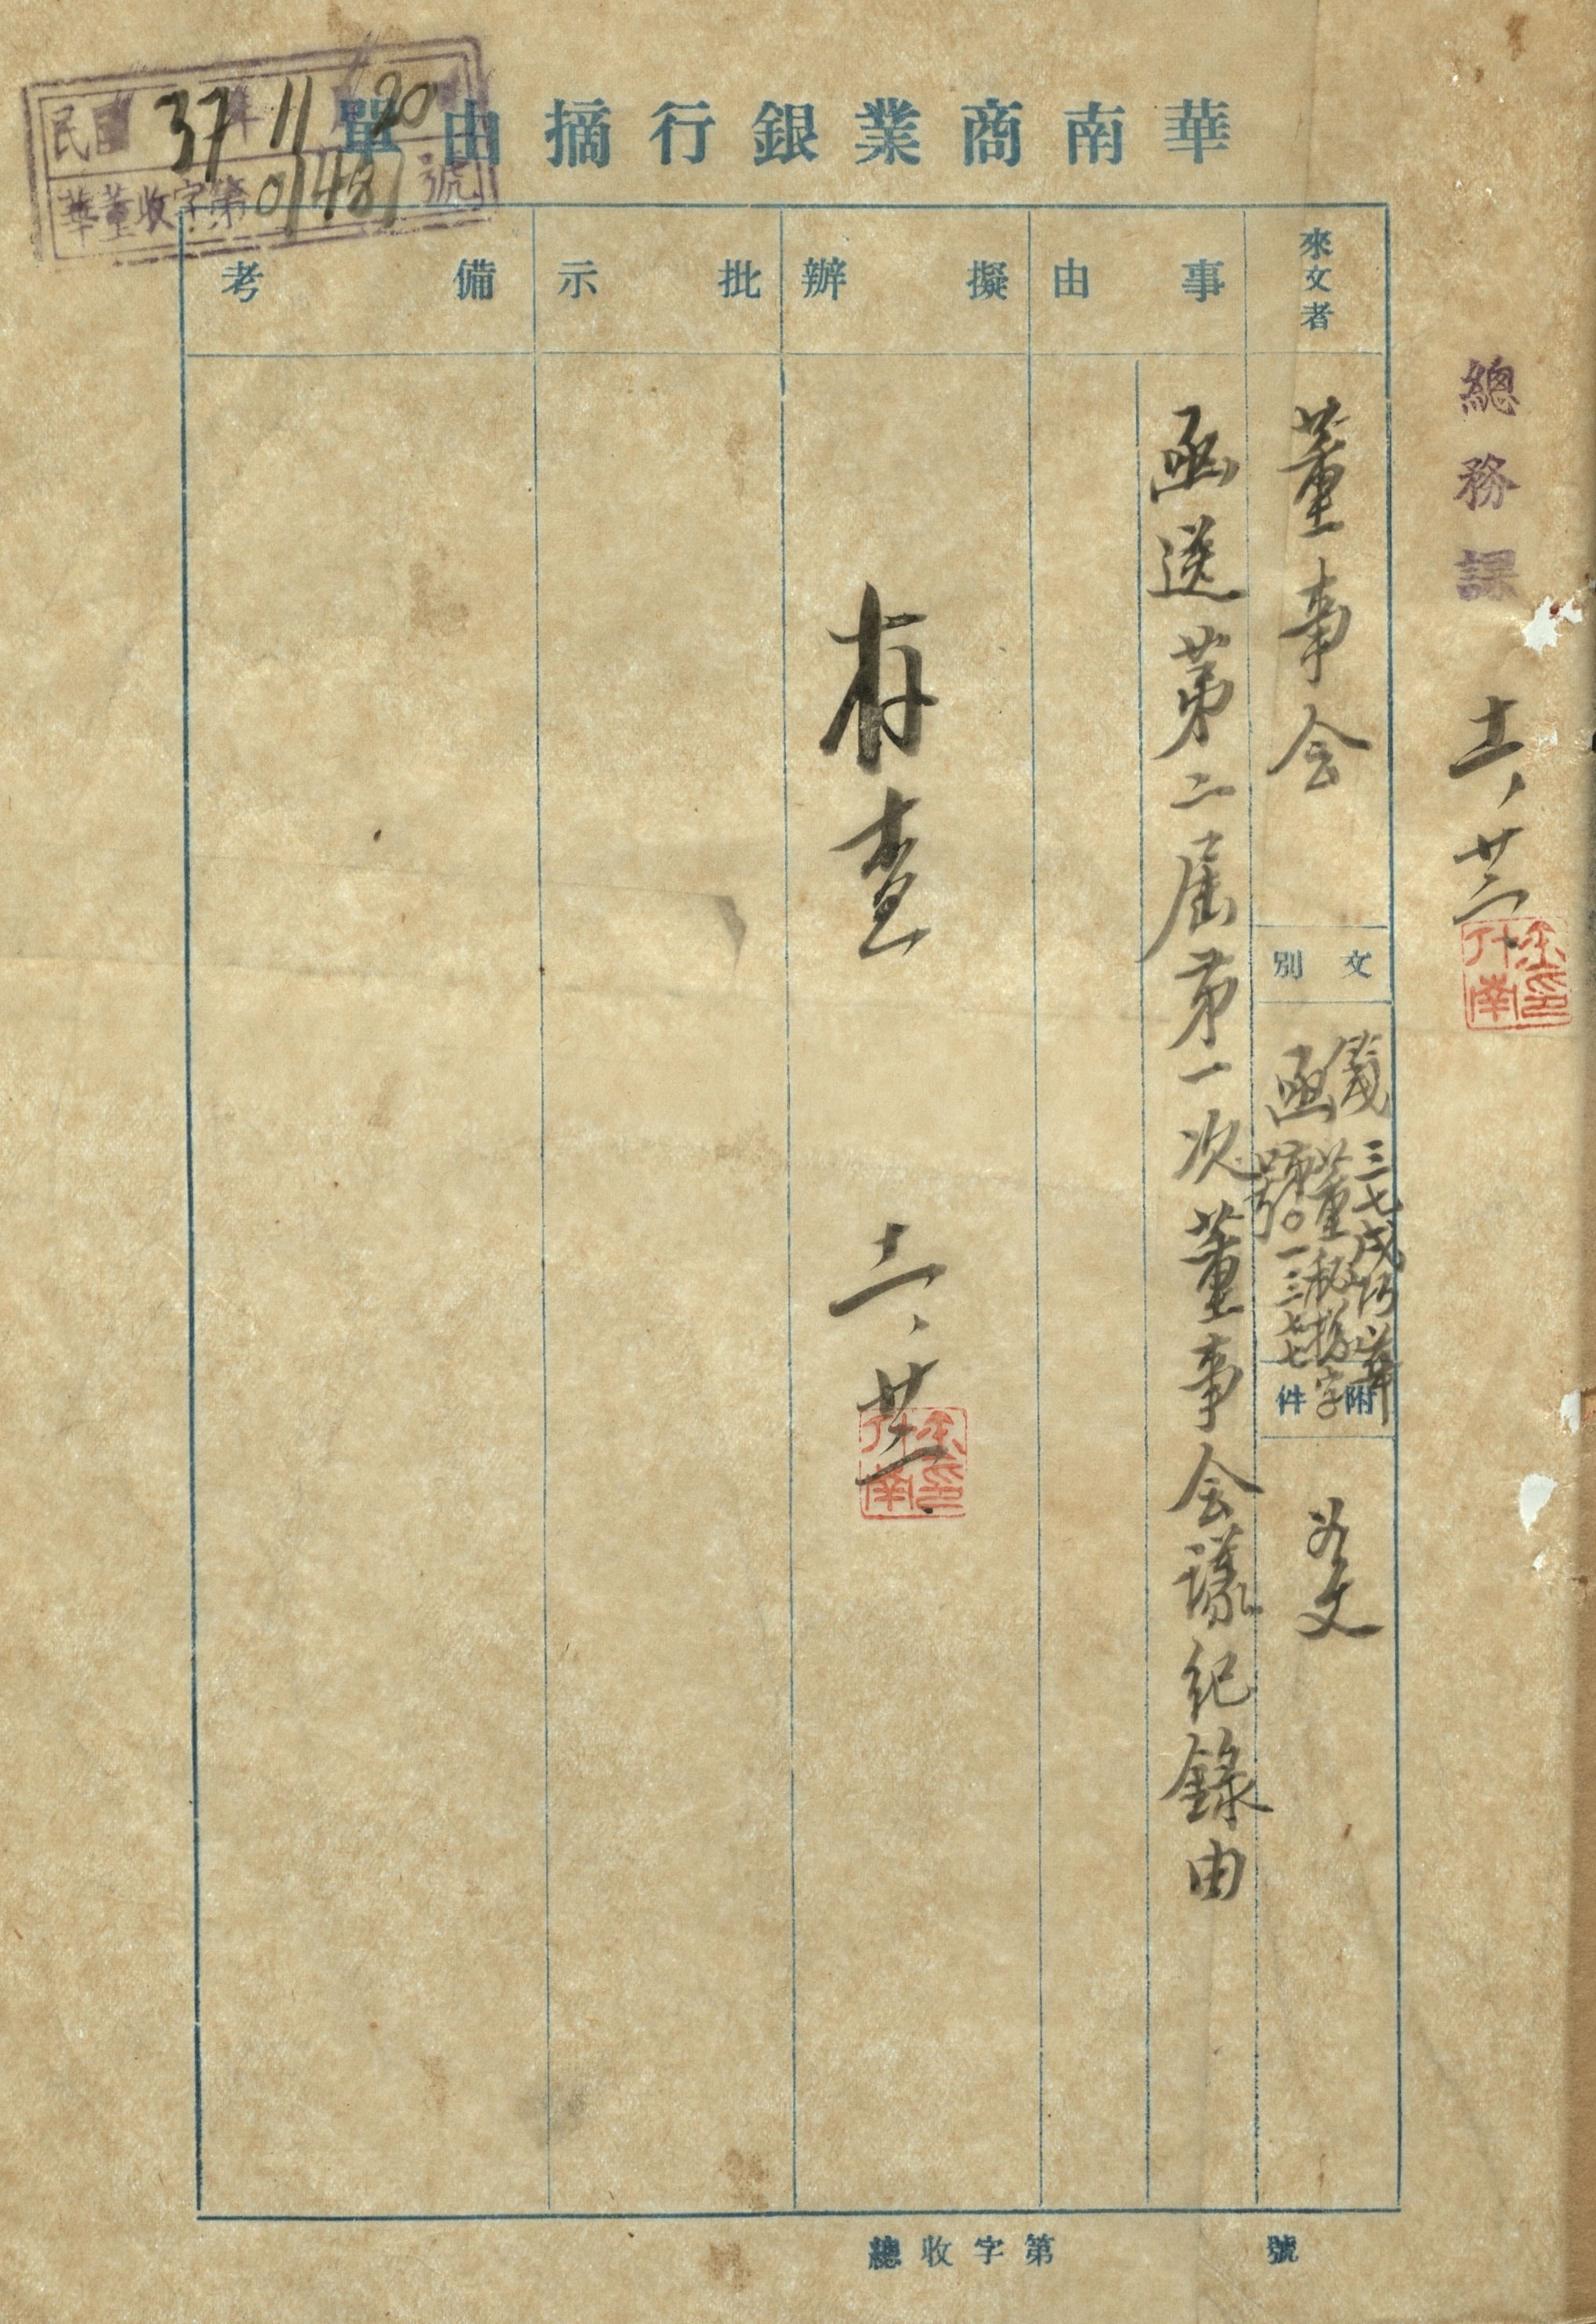 華南商業銀行摘由單
民國37年11月20
華董收字第01481號
總務課
十一、廿三
來文者
董事会
文別
箋函
三七戌
華董秘
字
號〇一三七七
附件
如文
事由
函送第二届第一次董事会議紀錄由
擬辦
存查
十一、廿三
批示
備考
總收字第 號